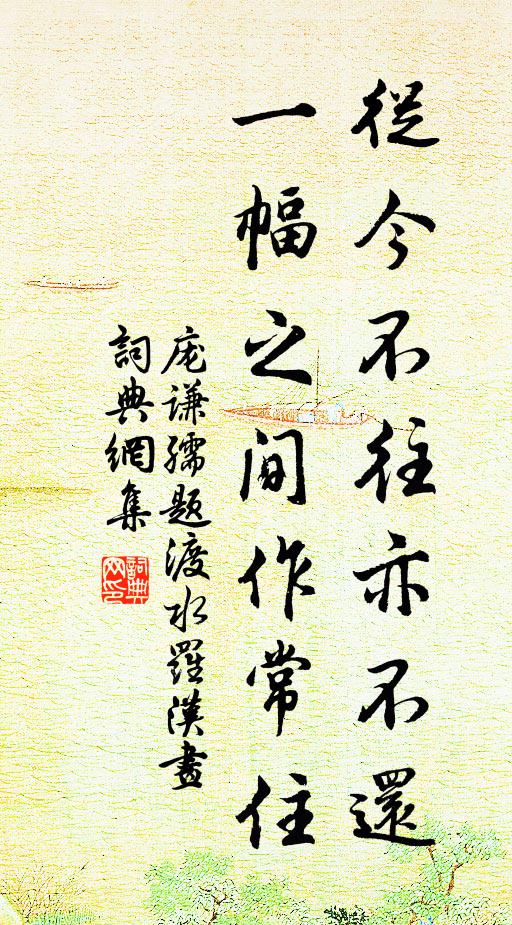 從今不往亦不還
一幅之間作常住
庬谦孺题渡水羅漢畫
詞典網集
詞典
网印